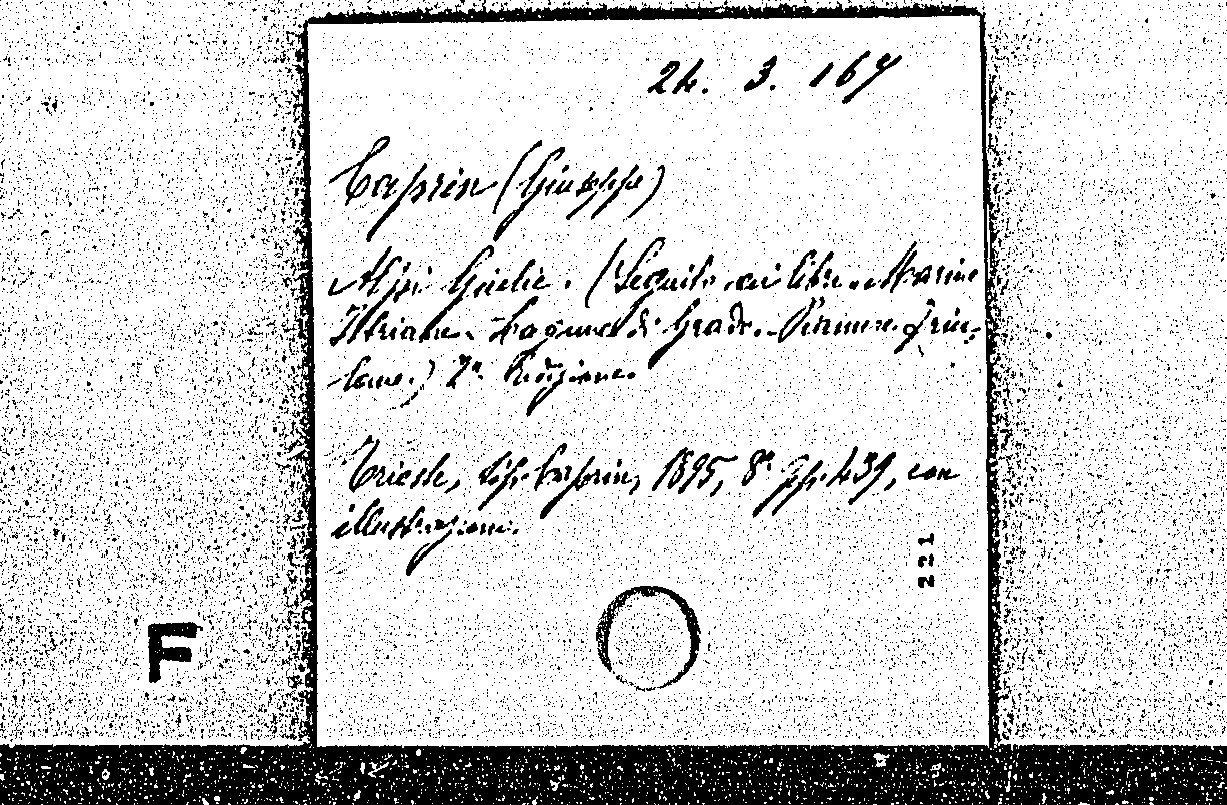 24. 3. 167
Caprin (Giuseppe)
Alpi Giulie. (Seguito ai libri. Marine
Istriane. Lagune di Grado. Pianure friu-
lane.) 2ª Edizione.
Trieste, tip. Caprin, 1895, 8° pp. 439, con
illustrazioni.
221
F